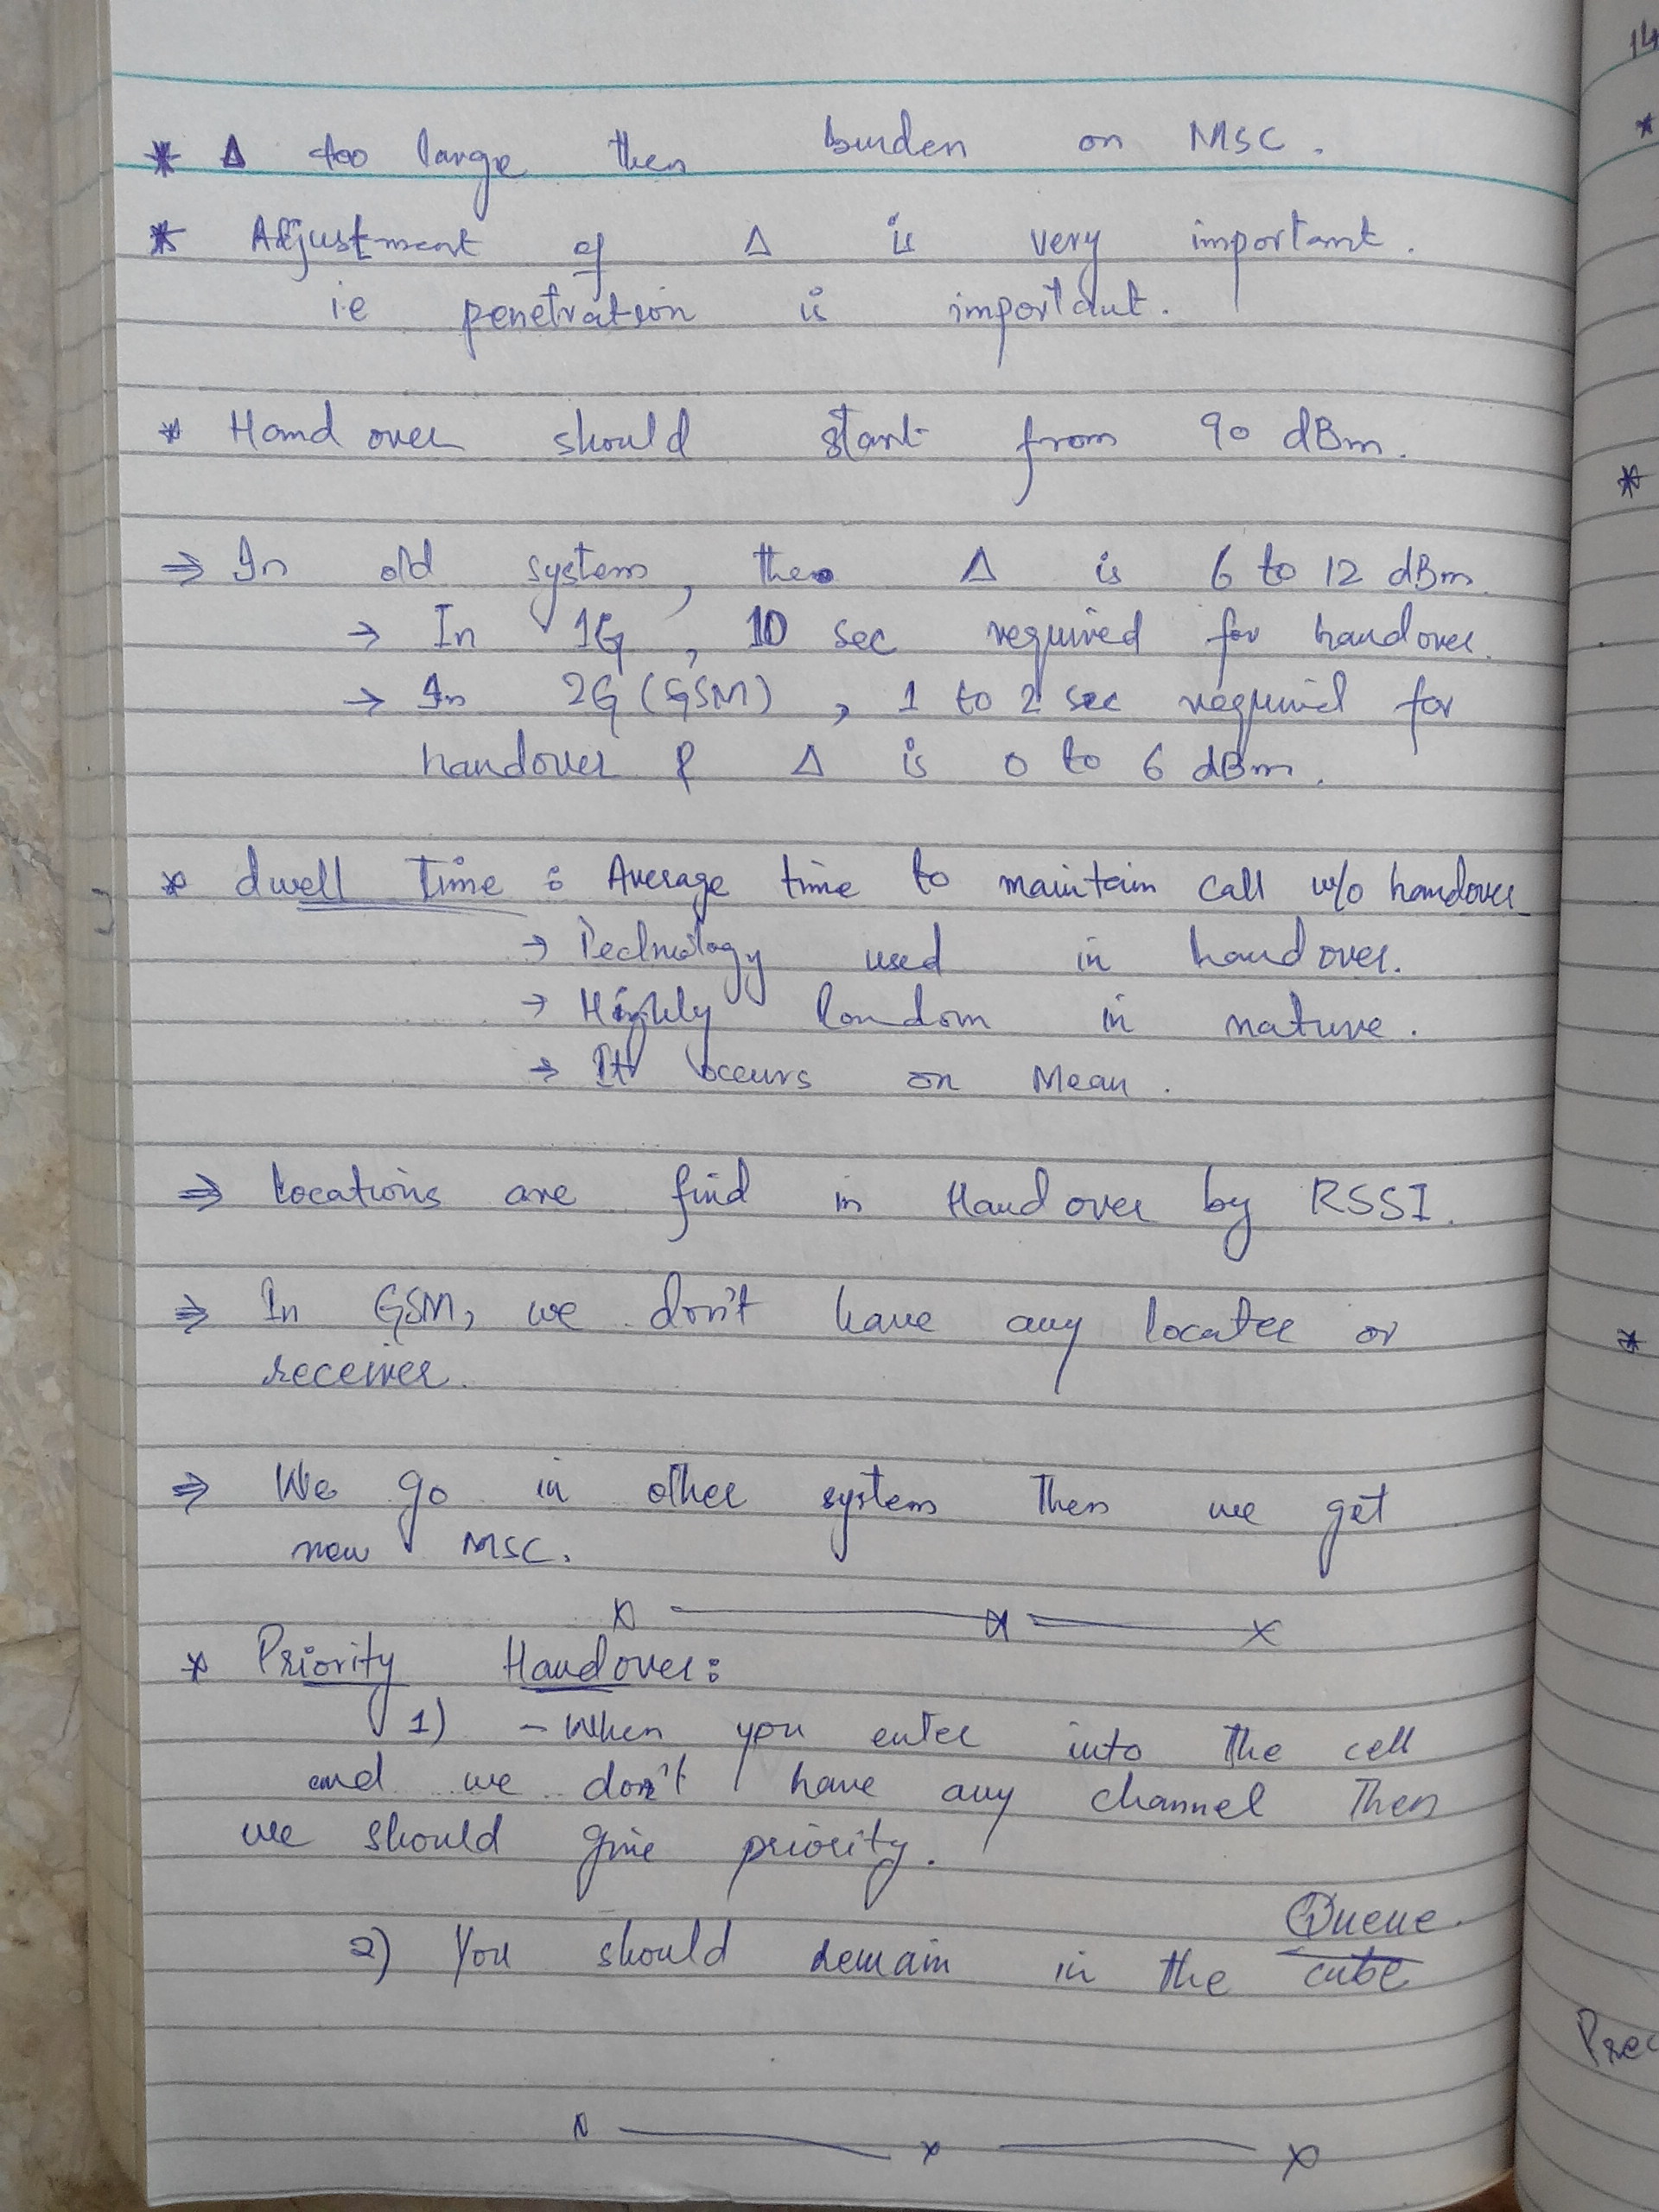 * Δ too large then burden on MSC.
* Adjustment of Δ is very important.
i.e penetration is important.
* Handover should start from 90 dBm.
⇒ In old system, then Δ is 6 to 12 dBm.
→ In 1G, 10 sec required for handover.
→ In 2G (GSM), 1 to 2 sec required for
handover & Δ is 0 to 6 dBm.
* dwell Time : Average time to maintain call w/o handover
→ Technology used in handover.
→ Highly random in nature.
→ It occurs on Mean.
⇒ locations are find in Handover by RSSI.
⇒ In GSM, we don't have any locater or
receiver.
⇒ We go in other system then we get
new MSC.
x — x — x
* Priority Handover:
1) - When you enter into the cell
and we don't have any channel then
we should give priority.
Queue.
2) You should remain in the cube
x — x — x
14
*
*
*
Prec